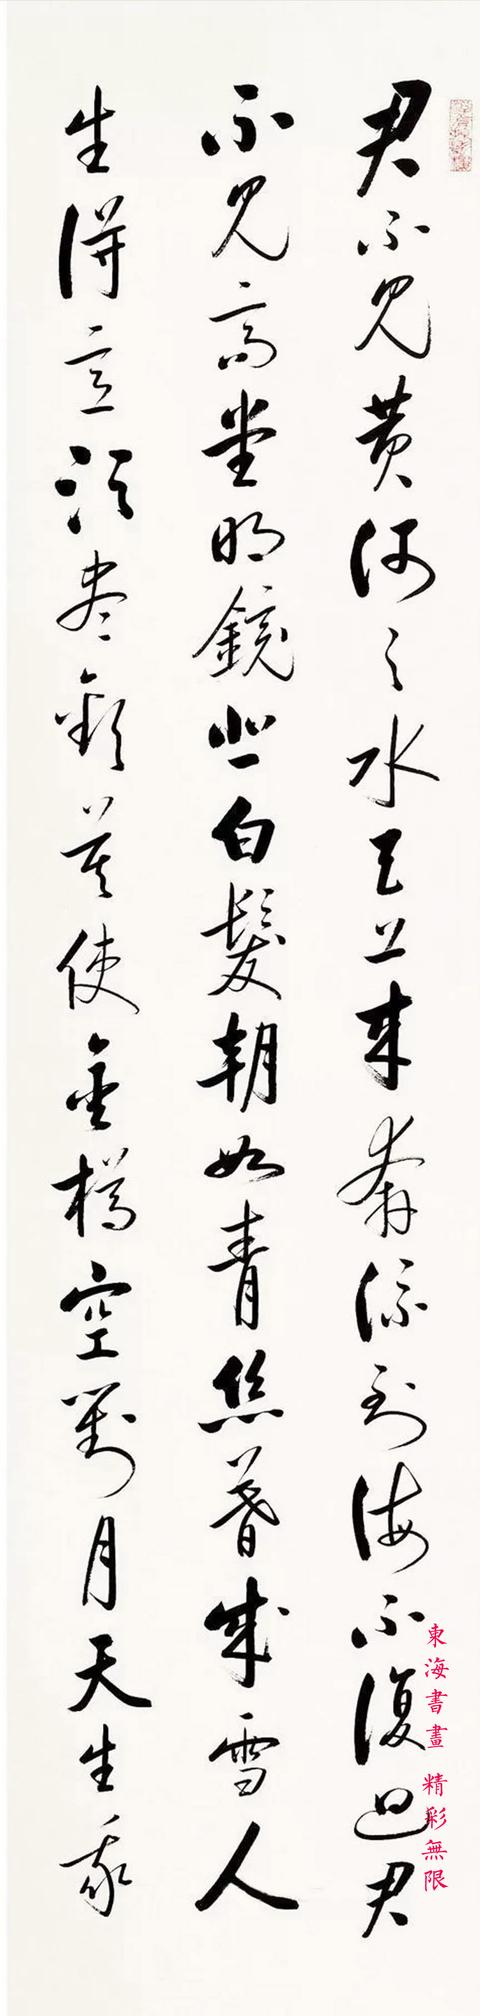 君不見黄河之水天上来奔流到海不復迴君
不見高堂明鏡悲白髮朝如青絲暮成雪人
生得意須盡歡莫使金樽空對月天生我
東海書畫 精彩無限